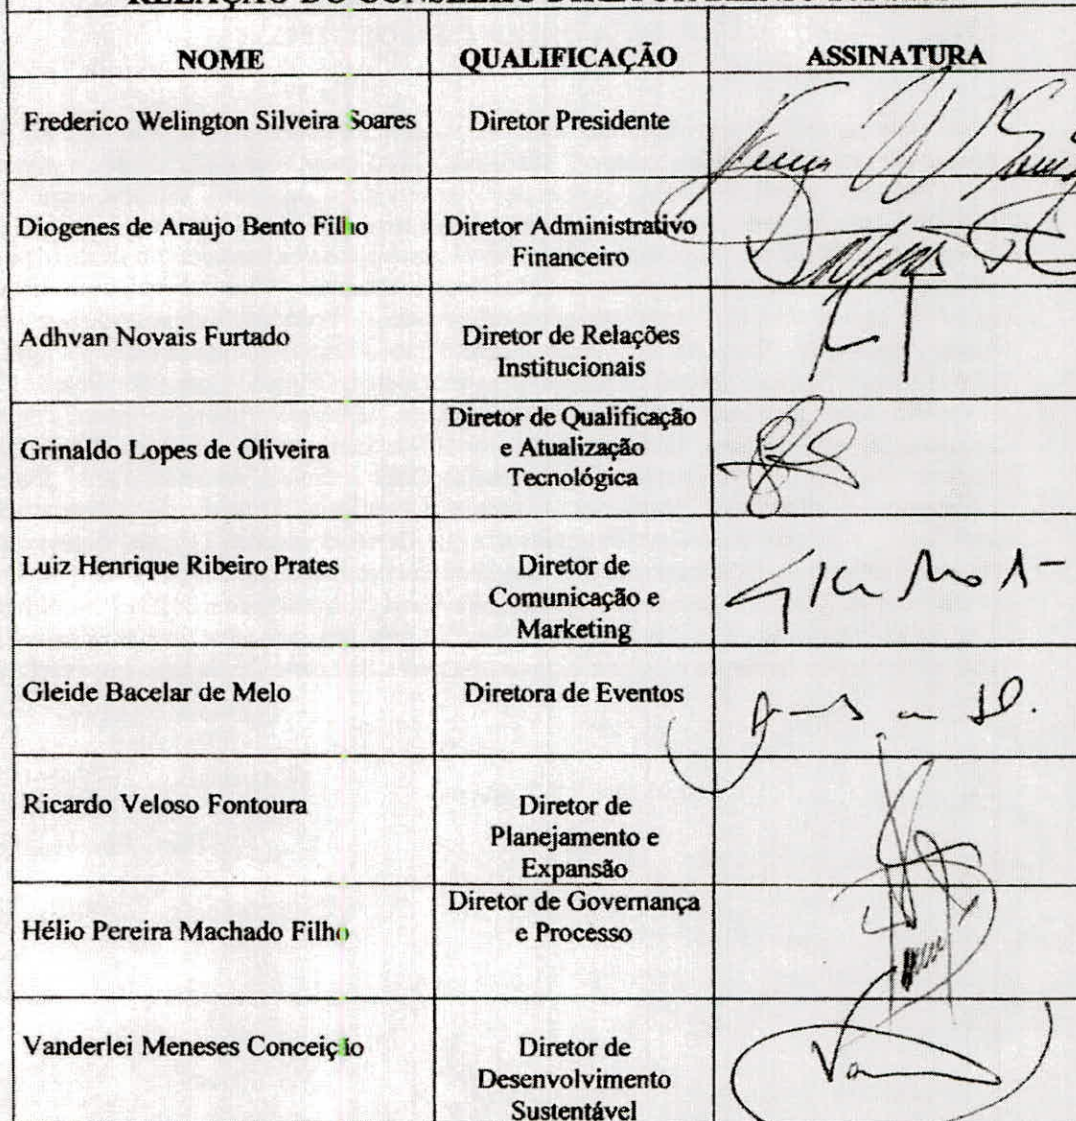 RELAÇÃO DO CONSELHO DIRETOR
NOME QUALIFICAÇÃO ASSINATURA
Frederico Welington Silveira Soares Diretor Presidente
Diogenes de Araujo Bento Filho Diretor Administrativo
Financeiro
Adhvan Novais Furtado Diretor de Relações
Institucionais
Grinaldo Lopes de Oliveira Diretor de Qualificação
e Atualização
Tecnológica
Luiz Henrique Ribeiro Prates Diretor de
Comunicação e
Marketing
Gleide Bacelar de Melo Diretora de Eventos
Ricardo Veloso Fontoura Diretor de
Planejamento e
Expansão
Hélio Pereira Machado Filho Diretor de Governança
e Processo
Vanderlei Meneses Conceição Diretor de
Desenvolvimento
Sustentável